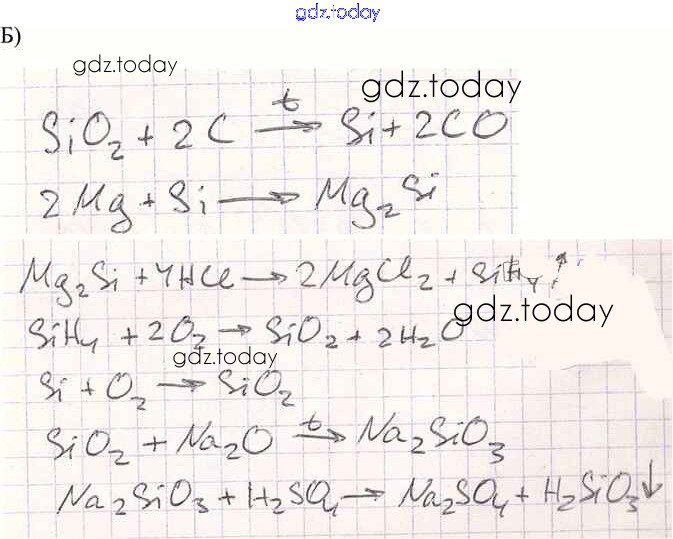 gdz.today
Б)
gdz.today
gdz.today
SiO₂ + 2C —t→ Si + 2CO
2Mg + Si → Mg₂Si
Mg₂Si + 4HCl → 2MgCl₂ + SiH₄↑
gdz.today
SiH₄ + 2O₂ → SiO₂ + 2H₂O
gdz.today
Si + O₂ → SiO₂
SiO₂ + Na₂O —t→ Na₂SiO₃
Na₂SiO₃ + H₂SO₄ → Na₂SO₄ + H₂SiO₃↓